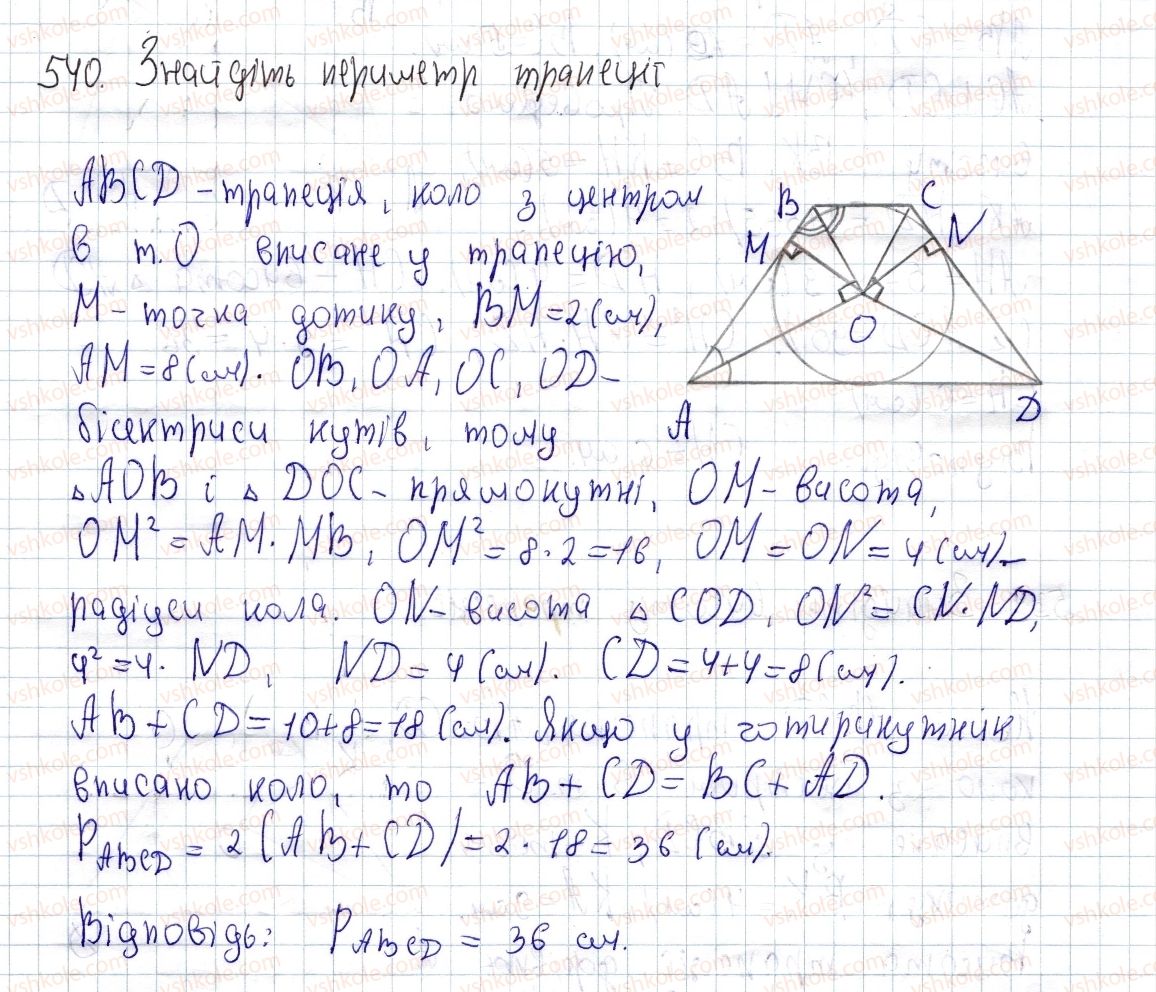 540. Знайдіть периметр трапеції
ABCD – трапеція, коло з центром
в т. O вписане у трапецію,
M – точка дотику, BM = 2 (см),
AM = 8 (см). OB, OA, OC, OD –
бісектриси кутів, тому
△AOB і △DOC – прямокутні, OM – висота,
OM² = AM · MB, OM² = 8 · 2 = 16, OM = ON = 4 (см) –
радіуси кола. ON – висота △COD, ON² = CN · ND,
4² = 4 · ND, ND = 4 (см). CD = 4+4 = 8 (см).
AB + CD = 10+8 = 18 (см). Якщо у чотирикутник
вписано коло, то AB + CD = BC + AD.
P ABCD = 2 (AB + CD) = 2 · 18 = 36 (см).
Відповідь: P ABCD = 36 см.
B C
M N
O
A D
vshkole.com